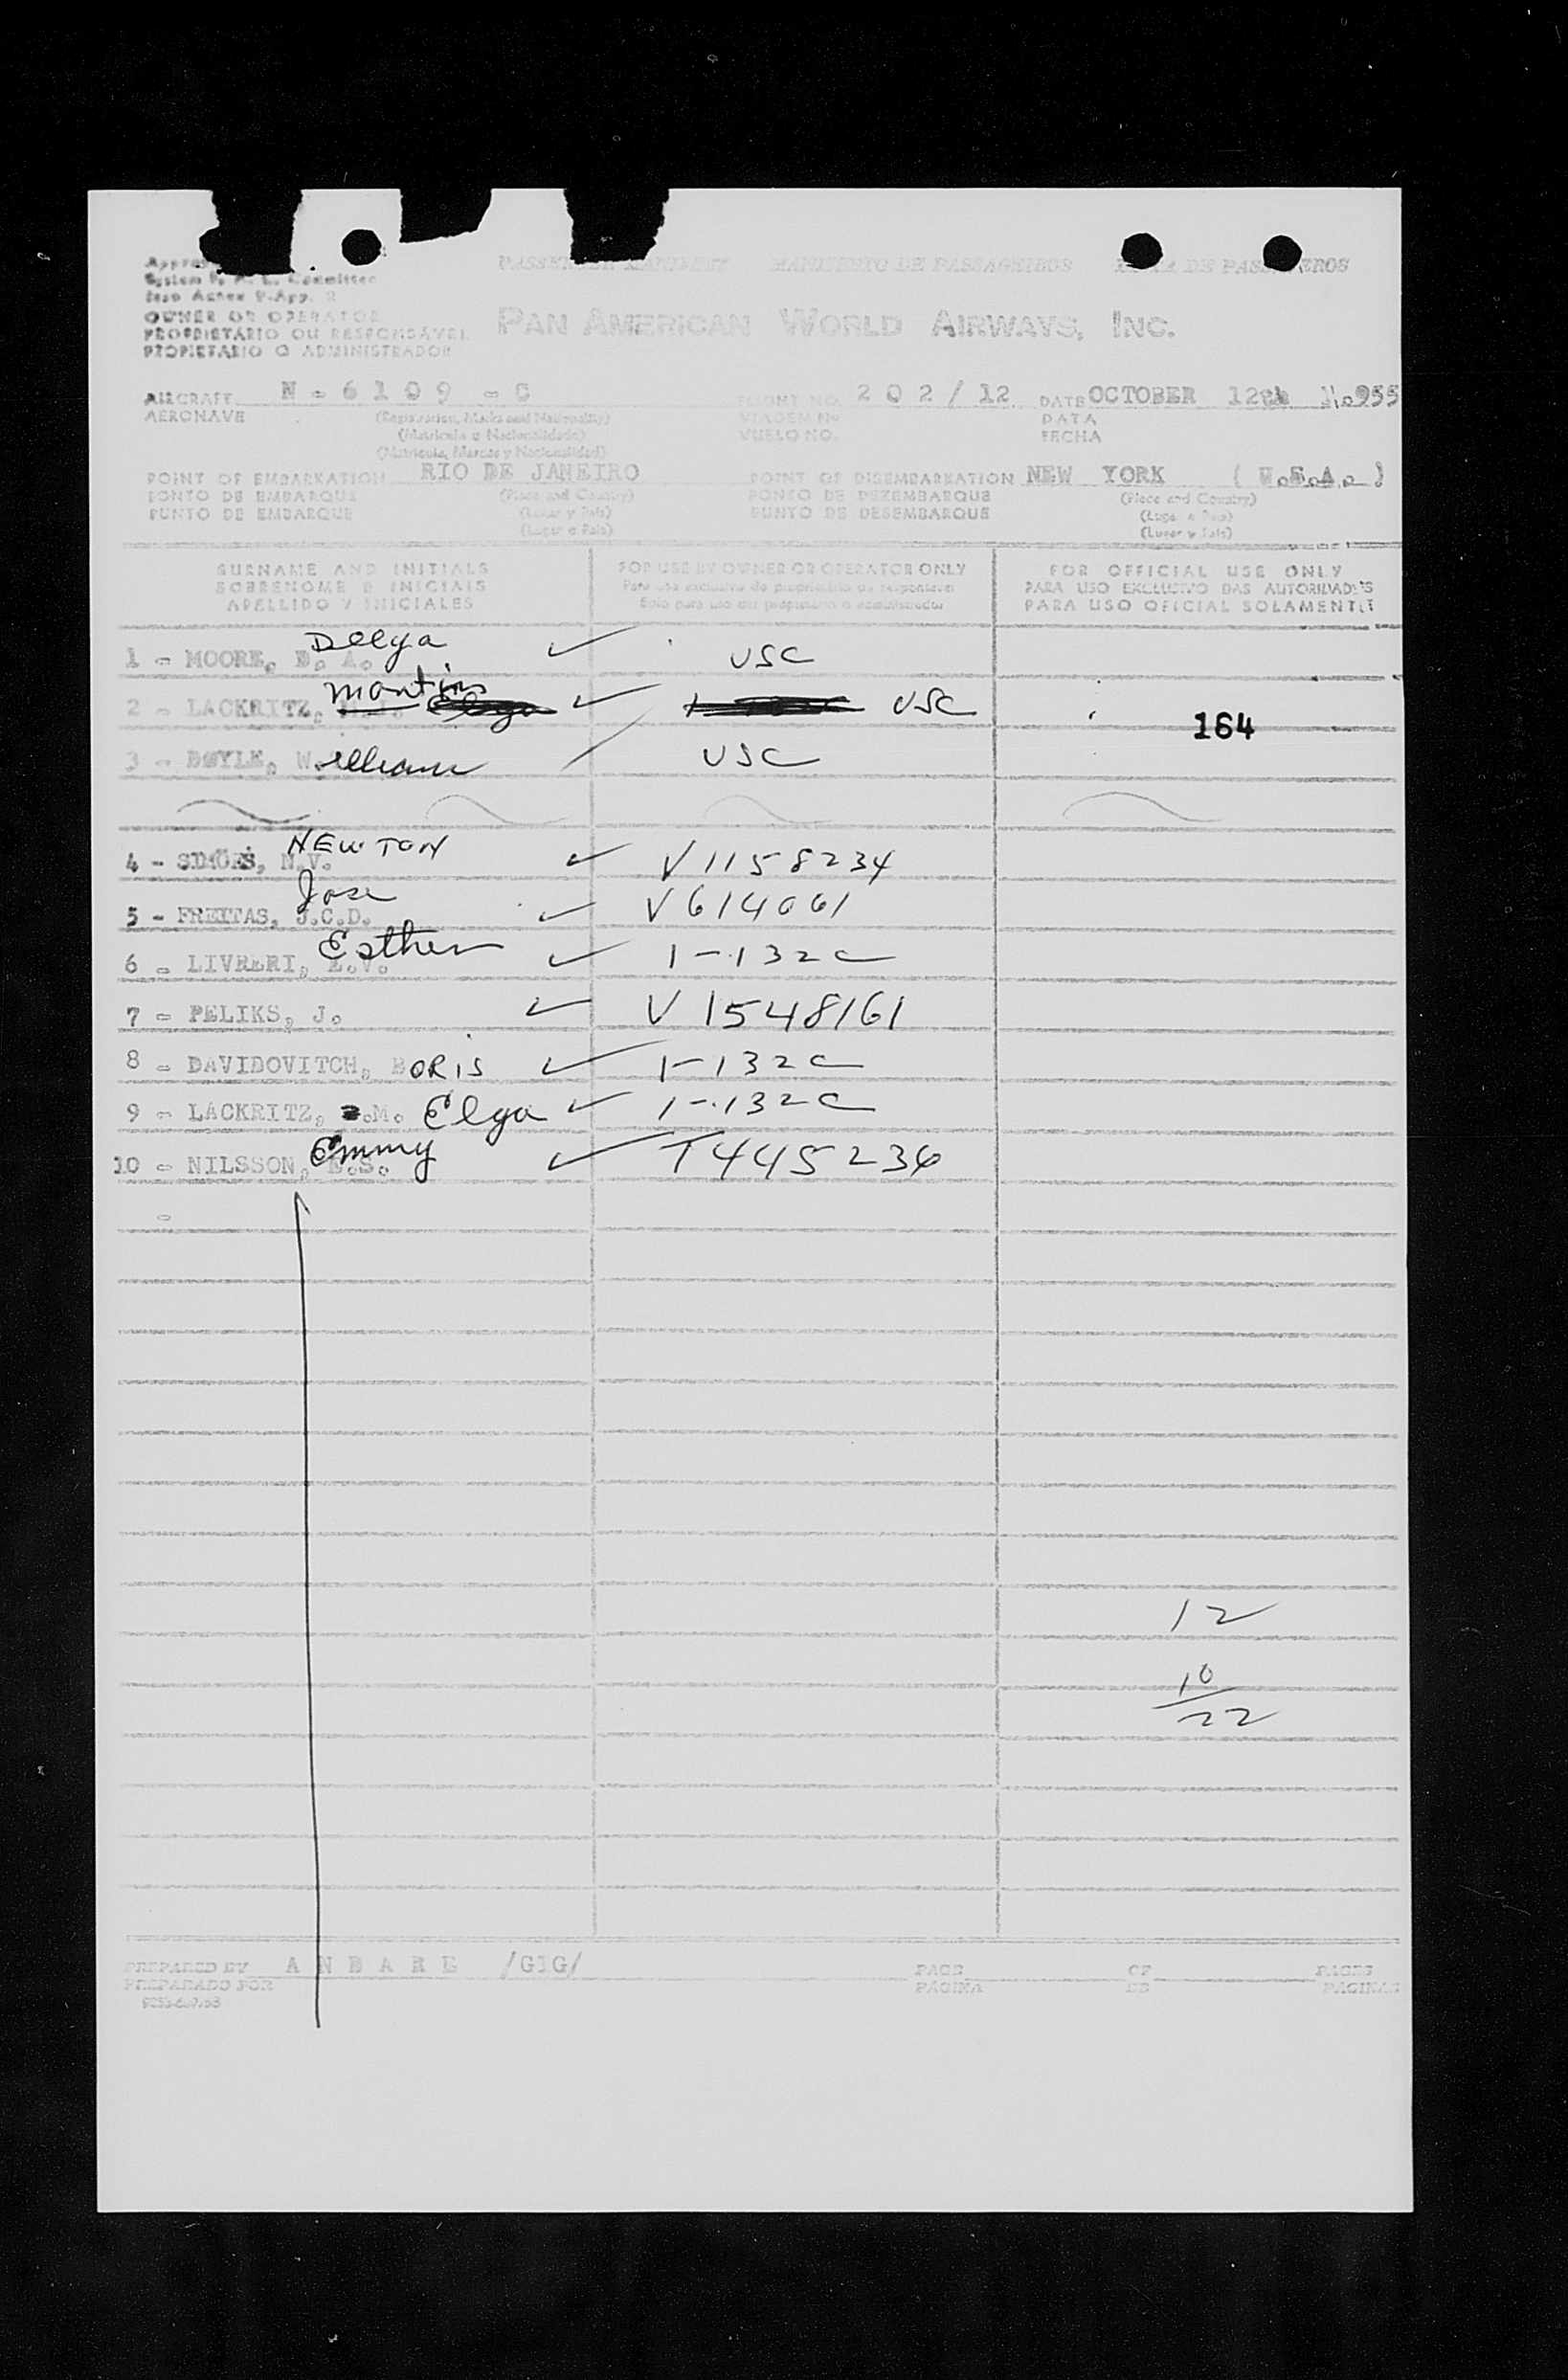 PASSENGER MANIFEST MANIFESTO DE PASSAGEIROS LISTA DE PASAJEROS
System F. A. L. Committee
Icao Annex 9-App. 2
OWNER OR OPERATOR
PROPRIETÁRIO OU RESPONSÁVEL
PROPIETARIO O ADMINISTRADOR
PAN AMERICAN WORLD AIRWAYS, INC.
AIRCRAFT N - 6109 - C FLIGHT NO. 202/12 DATE OCTOBER 12th 1955
AERONAVE (Registration, Marks and Nationality) VIAGEM No DATA
(Matricula e Nacionalidade) VUELO NO. FECHA
(Matricula, Marcas y Nacionalidad)
POINT OF EMBARKATION RIO DE JANEIRO POINT OF DISEMBARKATION NEW YORK ( U.S.A. )
PONTO DE EMBARQUE (Place and Country) PONTO DE DEZEMBARQUE (Place and Country)
PUNTO DE EMBARQUE (Lugar y Pais) PUNTO DE DESEMBARQUE (Lugar e Pais)
(Lugar e Pais) (Lugar y Pais)
SURNAME AND INITIALS FOR USE BY OWNER OR OPERATOR ONLY FOR OFFICIAL USE ONLY
SOBRENOME E INICIAIS Para uso exclusivo do proprietário ou responsável PARA USO EXCLUSIVO DAS AUTORIDADES
APELLIDO Y INICIALES Solo para uso del propietario o administrador PARA USO OFICIAL SOLAMENTE
Delya
1 - MOORE, D. A. USC
Martin
2 - LACKRITZ, USC
164
3 - DOYLE, William USC
NEWTON
4 - SIMOES, N.V. V1158234
Jose
5 - FREITAS, J.C.D. V614061
Esther
6 - LIVRERI, E.V. 1-132C
7 - PELIKS, J. V1548161
8 - DAVIDOVITCH, BORIS 1-132C
9 - LACKRITZ, .M. Elga 1-132C
Emmy
10 - NILSSON, E.S. T445236
-
12
10
22
PREPARED BY ANDARE /GIG/ PAGE OF PAGES
PREPARADO POR PÁGINA DE PÁGINAS